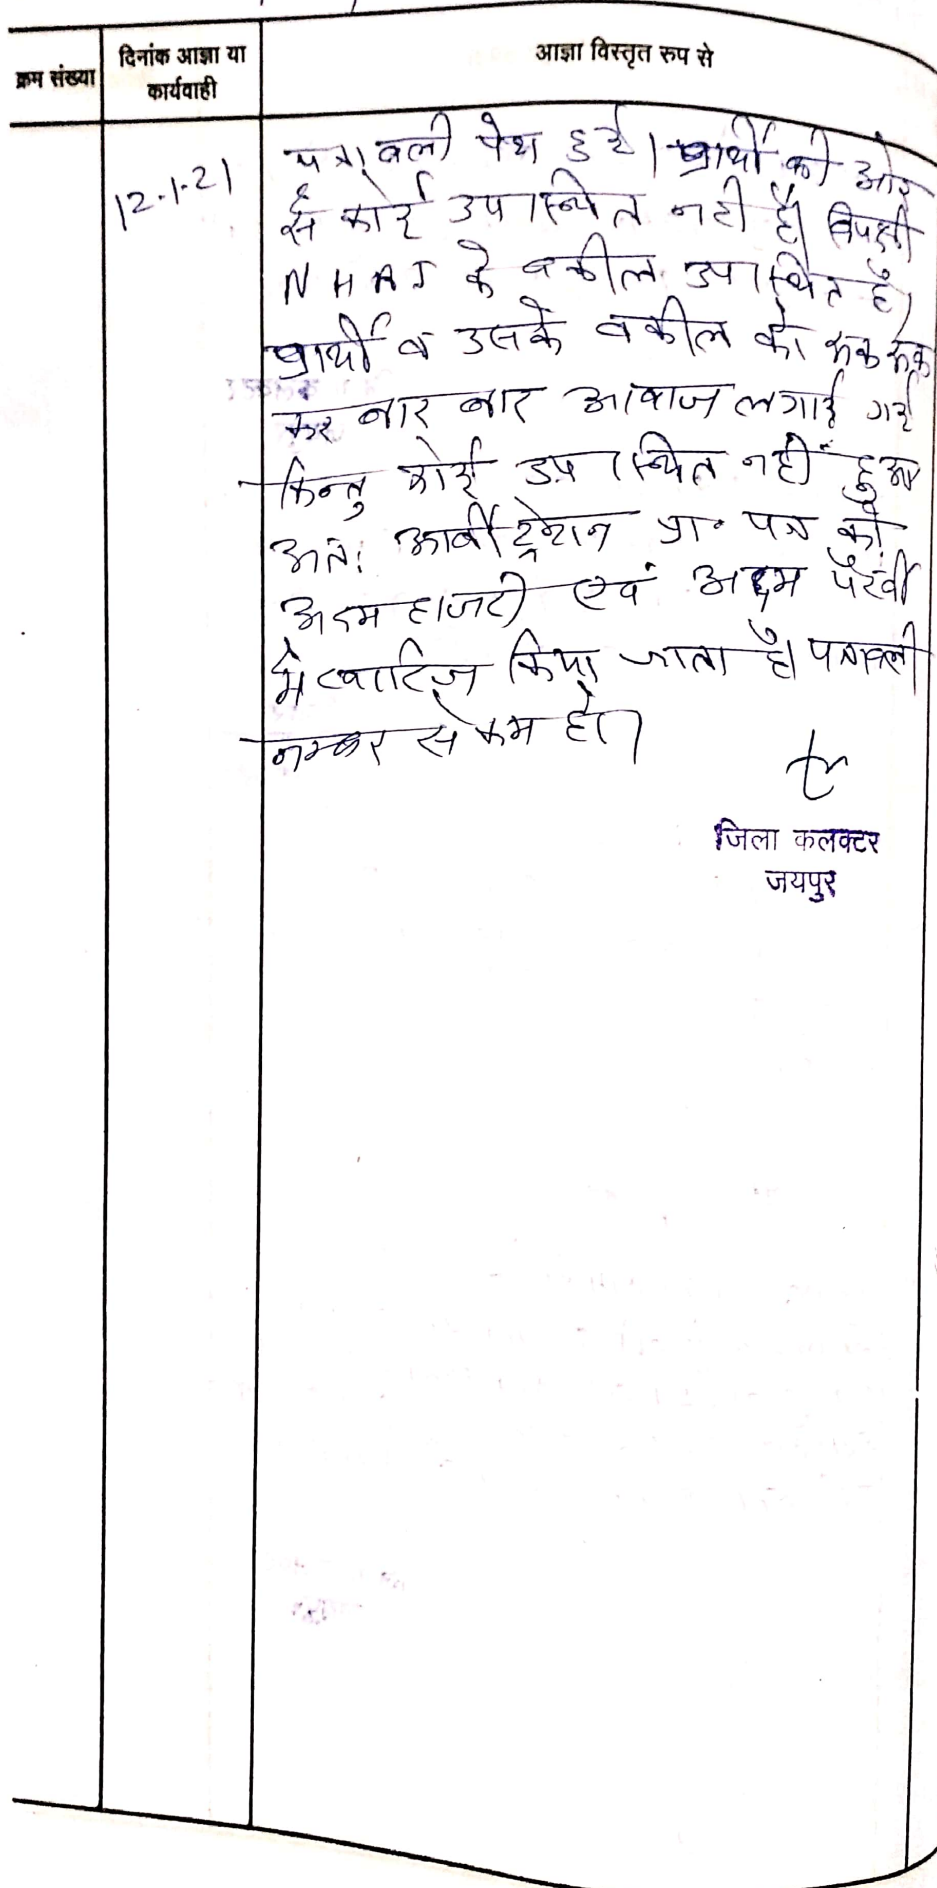 क्रम संख्या
दिनांक आज्ञा या
कार्यवाही
आज्ञा विस्तृत रुप से
12.1.21
पत्रावली पेश हुई। प्रार्थी की ओर
से कोई उपस्थित नही है। विपक्षी
NHAI के वकील उपस्थित है।
प्रार्थी व उसके वकील को रूक रूक
कर बार बार आवाज लगाई गई
किन्तु कोई उपस्थित नहीं हुआ
अतः आर्बीट्रेशन प्रा. पत्र को
अदम हाजरी एवं अदम पैरवी
में खारिज किया जाता है। पत्रावली
नम्बर से कम हो।
जिला कलक्टर
जयपुर